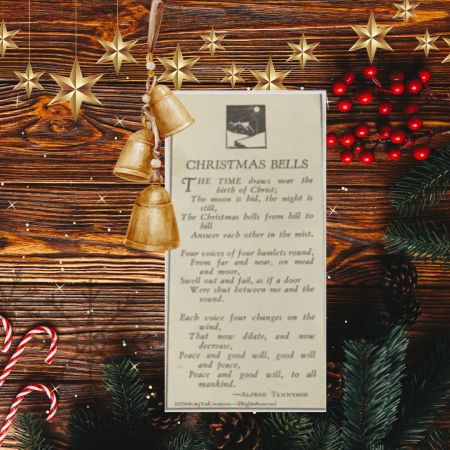 CHRISTMAS BELLS
THE TIME draws near the
birth of Christ;
The moon is hid, the night is
still,
The Christmas bells from hill to
hill
Answer each other in the mist.
Four voices of four hamlets round,
From far and near, on mead
and moor,
Swell out and fail, as if a door
Were shut between me and the
sound.
Each voice four changes on the
wind,
That now dilate, and now
decrease,
Peace and good will, good will
and peace,
Peace and good will, to all
mankind.
—ALFRED TENNYSON.